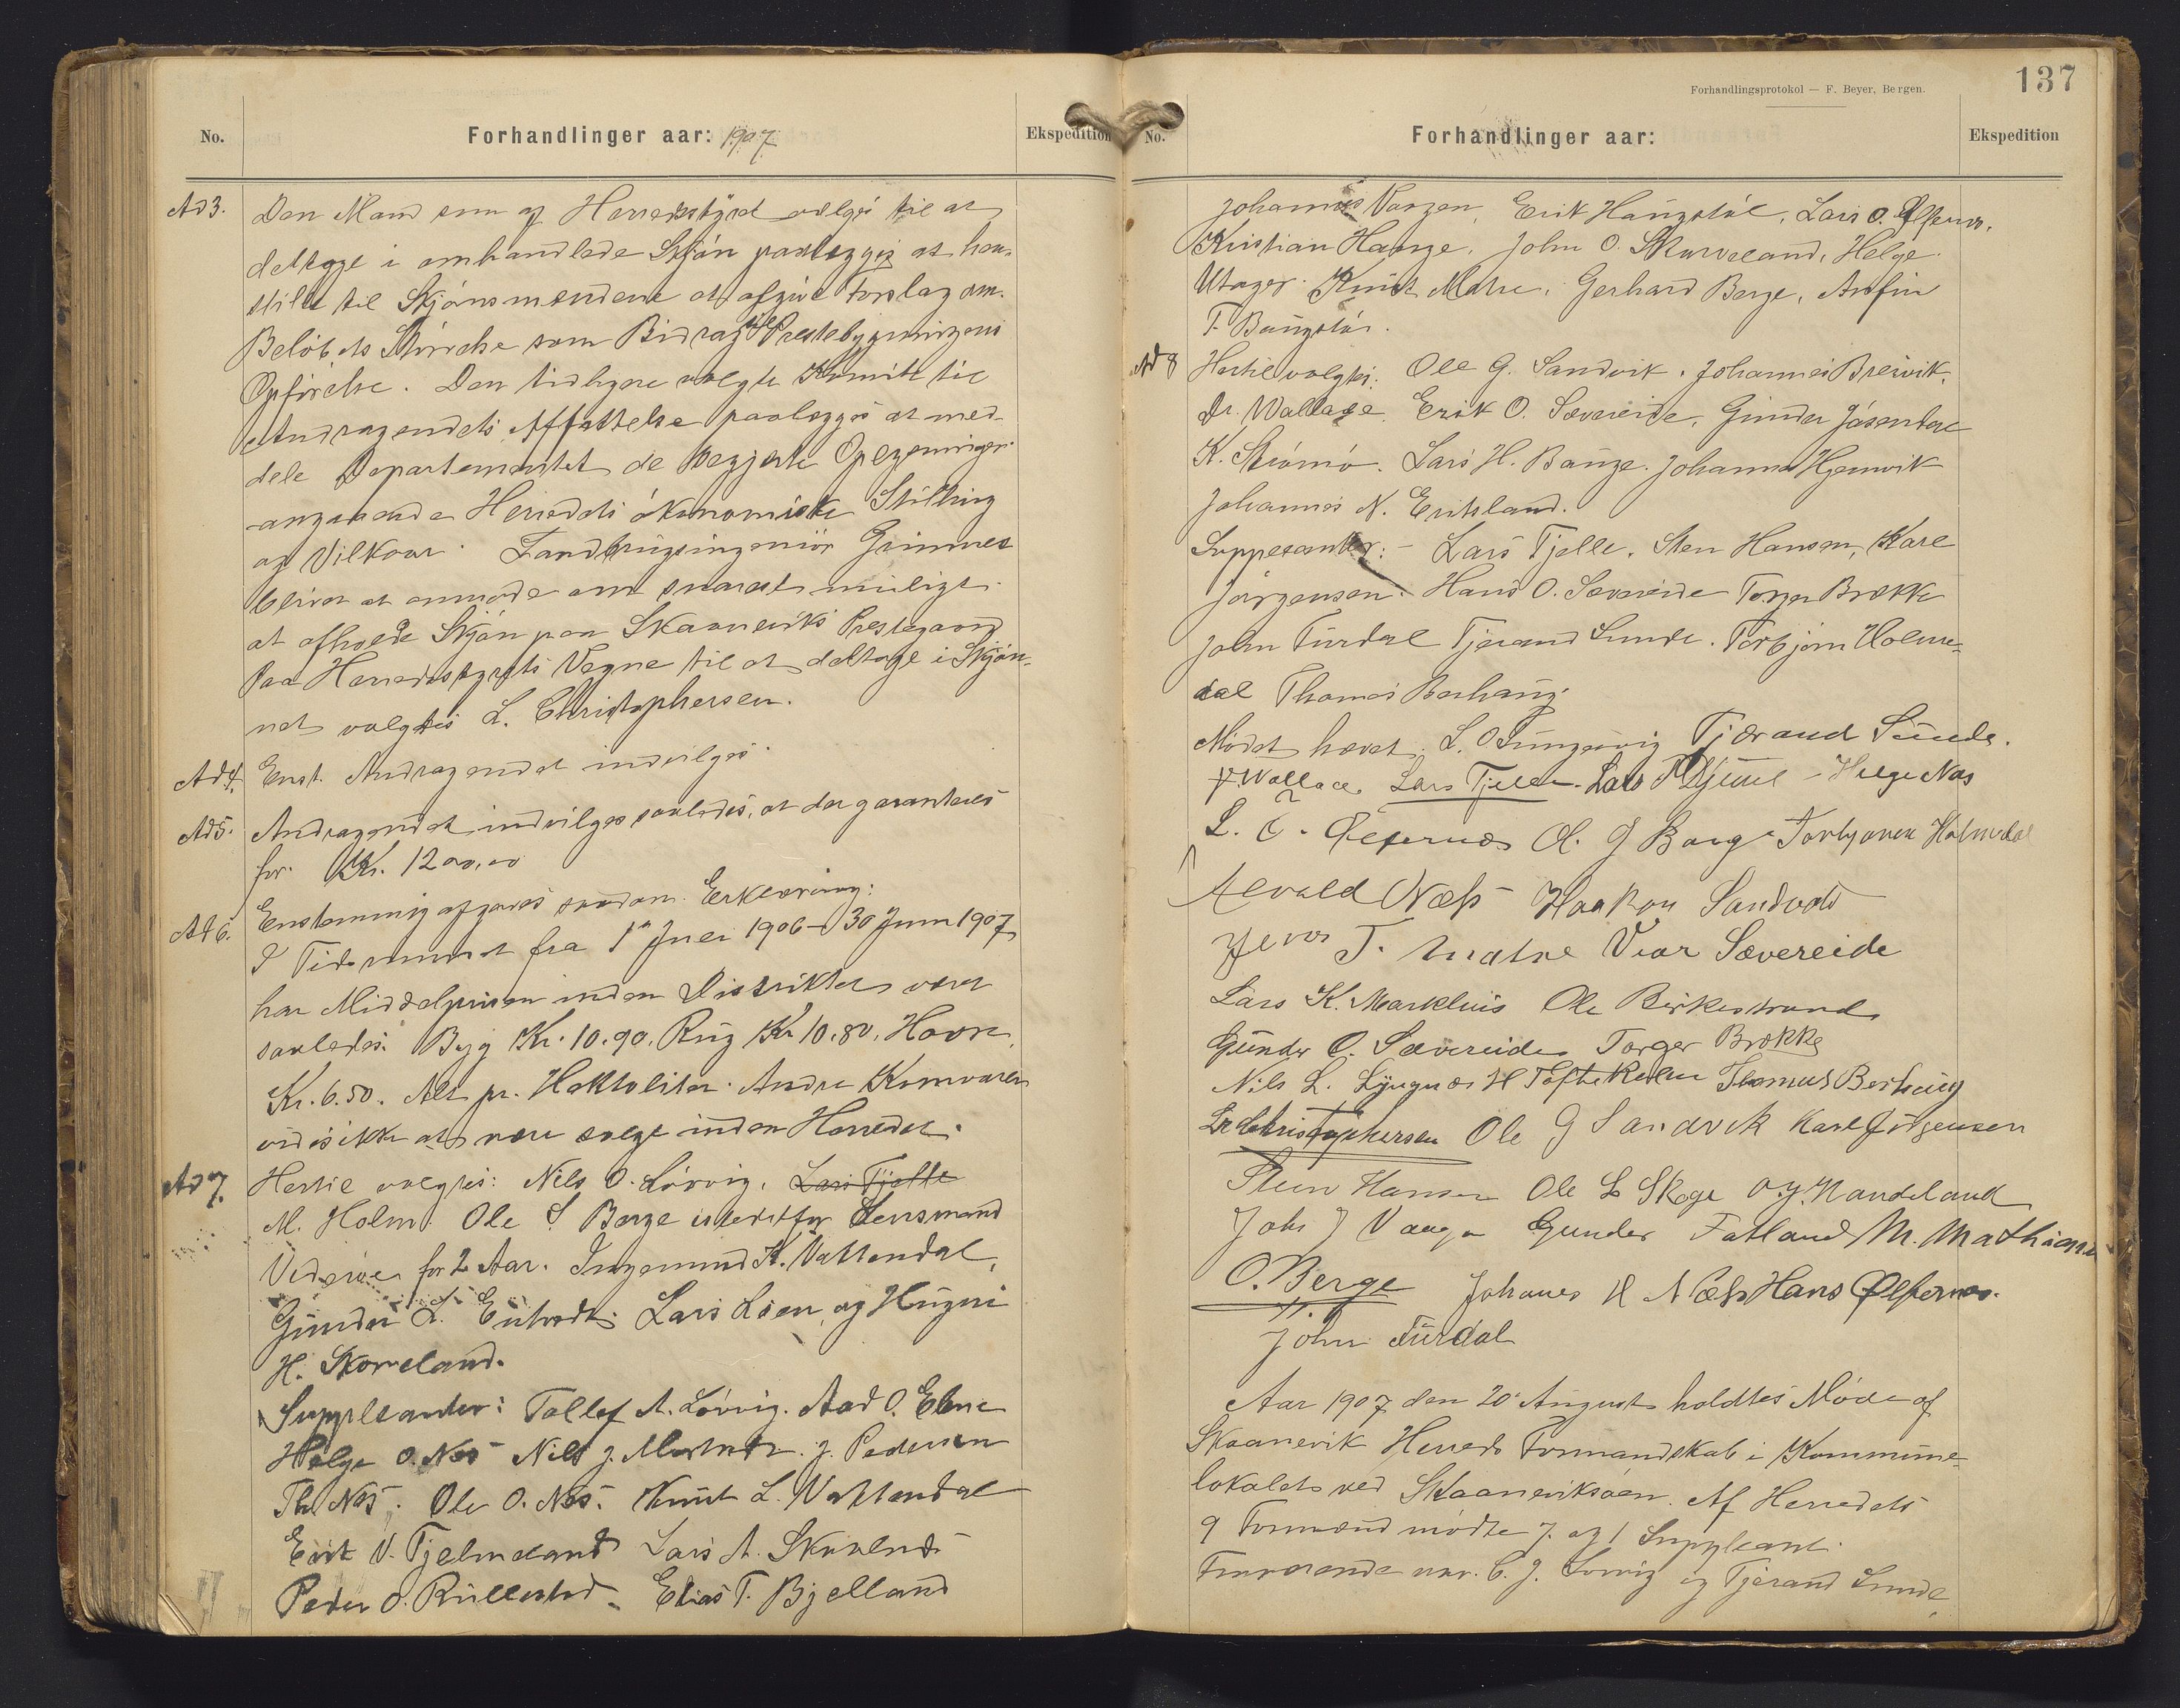 No.
Forhandlinger aar: 1907
Ekspedition
Ad 3. Den Mand som af Herredsstyret velges til at
deltage i omhandlede Skjön paalægges at hen-
stille til Skjönsmendene at afgive Forslag om
Belöbets Störrelse som Bidrag til Prestebygningens
Opförelse. Den tidligere valgte Komite til
Andragendets Affattelse paalægges at med-
dele Departementet de begjerte Oplysninger
angaaende Herredets ökonomiske Stilling
og Vilkaar. Landbrugsingeniör Grimnes
bliver at anmode om snarest muligt
at afholde Skjön paa Skaaneviks Prestegaard
Paa Herredsstyrets Vegne til at deltage i Skjön-
net valgtes L. Christophersen.
Ad 4. Enst. Andragendet indvilges.
Ad 5. Andragendet indvilges saaledes, at der garanteres
for Kr. 1200,00
Ad 6. Enstemmig afgaves saadan Erklæring:
I Tidsrummet fra 1ste Juli 1906 - 30 Juni 1907
har Middelprisen inden Distriktet været
saaledes: Byg Kr. 10.90. Rug Kr 10.80. Havre
Kr. 6.50. Alt pr. Hektoliter. Andre Kornvarer
vides ikke at være solgt inden Herredet.
Ad 7. Hertil valgtes: Nils O. Lörvig. Lars Tjelle
M. Holm. Ole S. Berge istedetfor Lensmand
for 2 Aar. Ingemund K. Vattendal,
Gunder L. Lars Löen, og Hugni
H. Skorveland.
Suppleanter: Tollef A. Lövvig. Aad O. Ebne
Helge O. Nes Nils J. J. Pedersen
Th. Nes. Ole O. Nes. Knut L. Vattendal
Erik V. Tjelmeland Lars A.
Peder O. Rullestad. Elias T. Bjelland
Forhandlingsprotokol — F. Beyer, Bergen.
137
No.
Forhandlinger aar:
Ekspedition
Johannes Vaagen, Erik Haugstöl, Lars O. Ølfernes.
Kristian Hauge, John O. Skarveland, Helge
Utager. Knut Matre, Gerhard Berge, Anfin
T. Baugstöl.
Ad 8 Hertil valgtes: Ole G. Sandvik. Johannes Breivik,
Dr. Wallace Erik O. Sævereide, Gunder Jösendal
K. Strömö. Lars H. Bauge. Johannes Hjemvik
Johannes N. Eikeland.
Suppleanter: - Lars Tjelle, Sten Hansen, Karl
Jörgensen. Hans O. Sævereide Torger Brekke
John Furdal Tjerand Sunde. Torbjörn Holme-
dal Thomas Borhaug.
Mödet hævet. L. O. Tungesvig Tjerand Sunde.
F. Wallace. Lars Tjelle. Lars Helge Næs
L. O. Ølfernæs O. G Borg Torbjoren Holmedal
Aevald Næss Haakon Sandvold
Jens T. Matre Viar Sævereide
Lars K. Markhus Ole Birkestrand
Gunder O. Sævereide Torger Brekke
Nils L. Lyngnæs H Toftekalur Thomas Borhaug
L. Christophersen Ole G Sandvik Karl Jörgensen
Steen Hansen Ole L Skoge
Johs J Vaage Gunder Fatland M. Mathiesen
O. Berge Johanes H Næss Hans Ølfernes.
John Furdal
Aar 1907 den 20 August holdtes Möde af
Skaanevik Herreds Formandskab i Kommune-
lokalet ved Skaaneviksöen. Af Herredets
9 Formænd mödte 7 og 1 Suppleant.
Fraværende var C. J. Lövvig og Tjerand Sunde